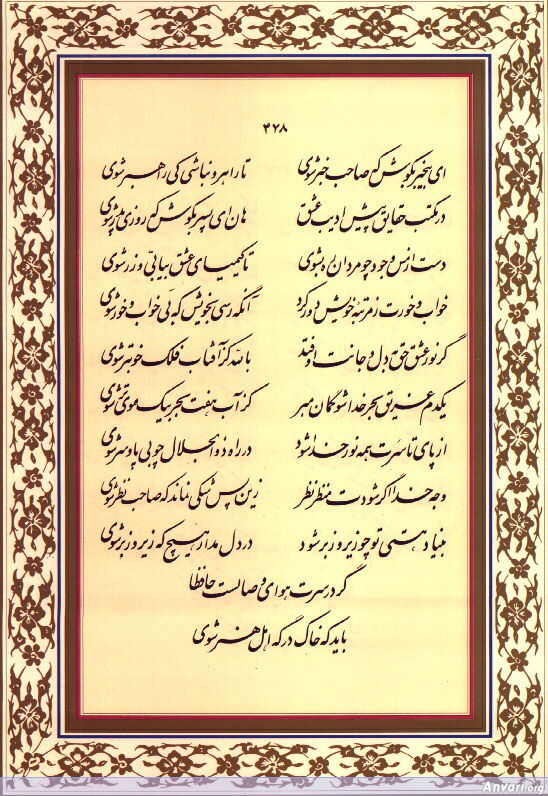 ۴۷۸
ای بیخبر بکوش که صاحب خبر شوی تا راهرو نباشی کی راهبر شوی
در مکتب حقایق پیش ادیب عشق هان ای پسر بکوش که روزی پدر شوی
دست از مس وجود چو مردان ره بشوی تا کیمیای عشق بیابی و زر شوی
خواب و خورت ز مرتبه خویش دور کرد آنگه رسی بخویش که بی خواب و خور شوی
گر نور عشق حق بدل و جانت اوفتد بالله کز آفتاب فلک خوبتر شوی
یکدم غریق بحر خدا شو گمان مبر کز آب هفت بحر بیک موی تر شوی
از پای تا سرت همه نور خدا شود در راه ذوالجلال چو بی پا و سر شوی
وجه خدا اگر شودت منظر نظر زین پس شکی نماند که صاحب نظر شوی
بنیاد هستی تو چو زیر و زبر شود در دل مدار هیچ که زیر و زبر شوی
گر در سرت هوای وصالست حافظا
باید که خاک درگه اهل هنر شوی
Anvari.org